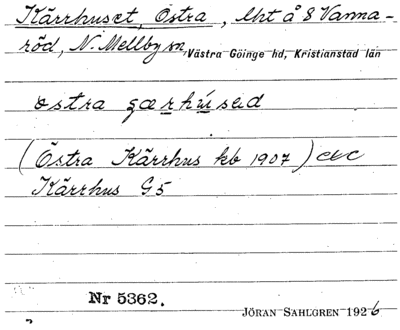 Kärrhuset, Östra, lht å 8 Vanna-
röd, N. Mellby sn, Västra Göinge hd, Kristianstad län
östra qærhúsəd
(Östra Kärrhus kb 1907)
Kärrhus G5
Nr 5362.
JÖRAN SAHLGREN 1926